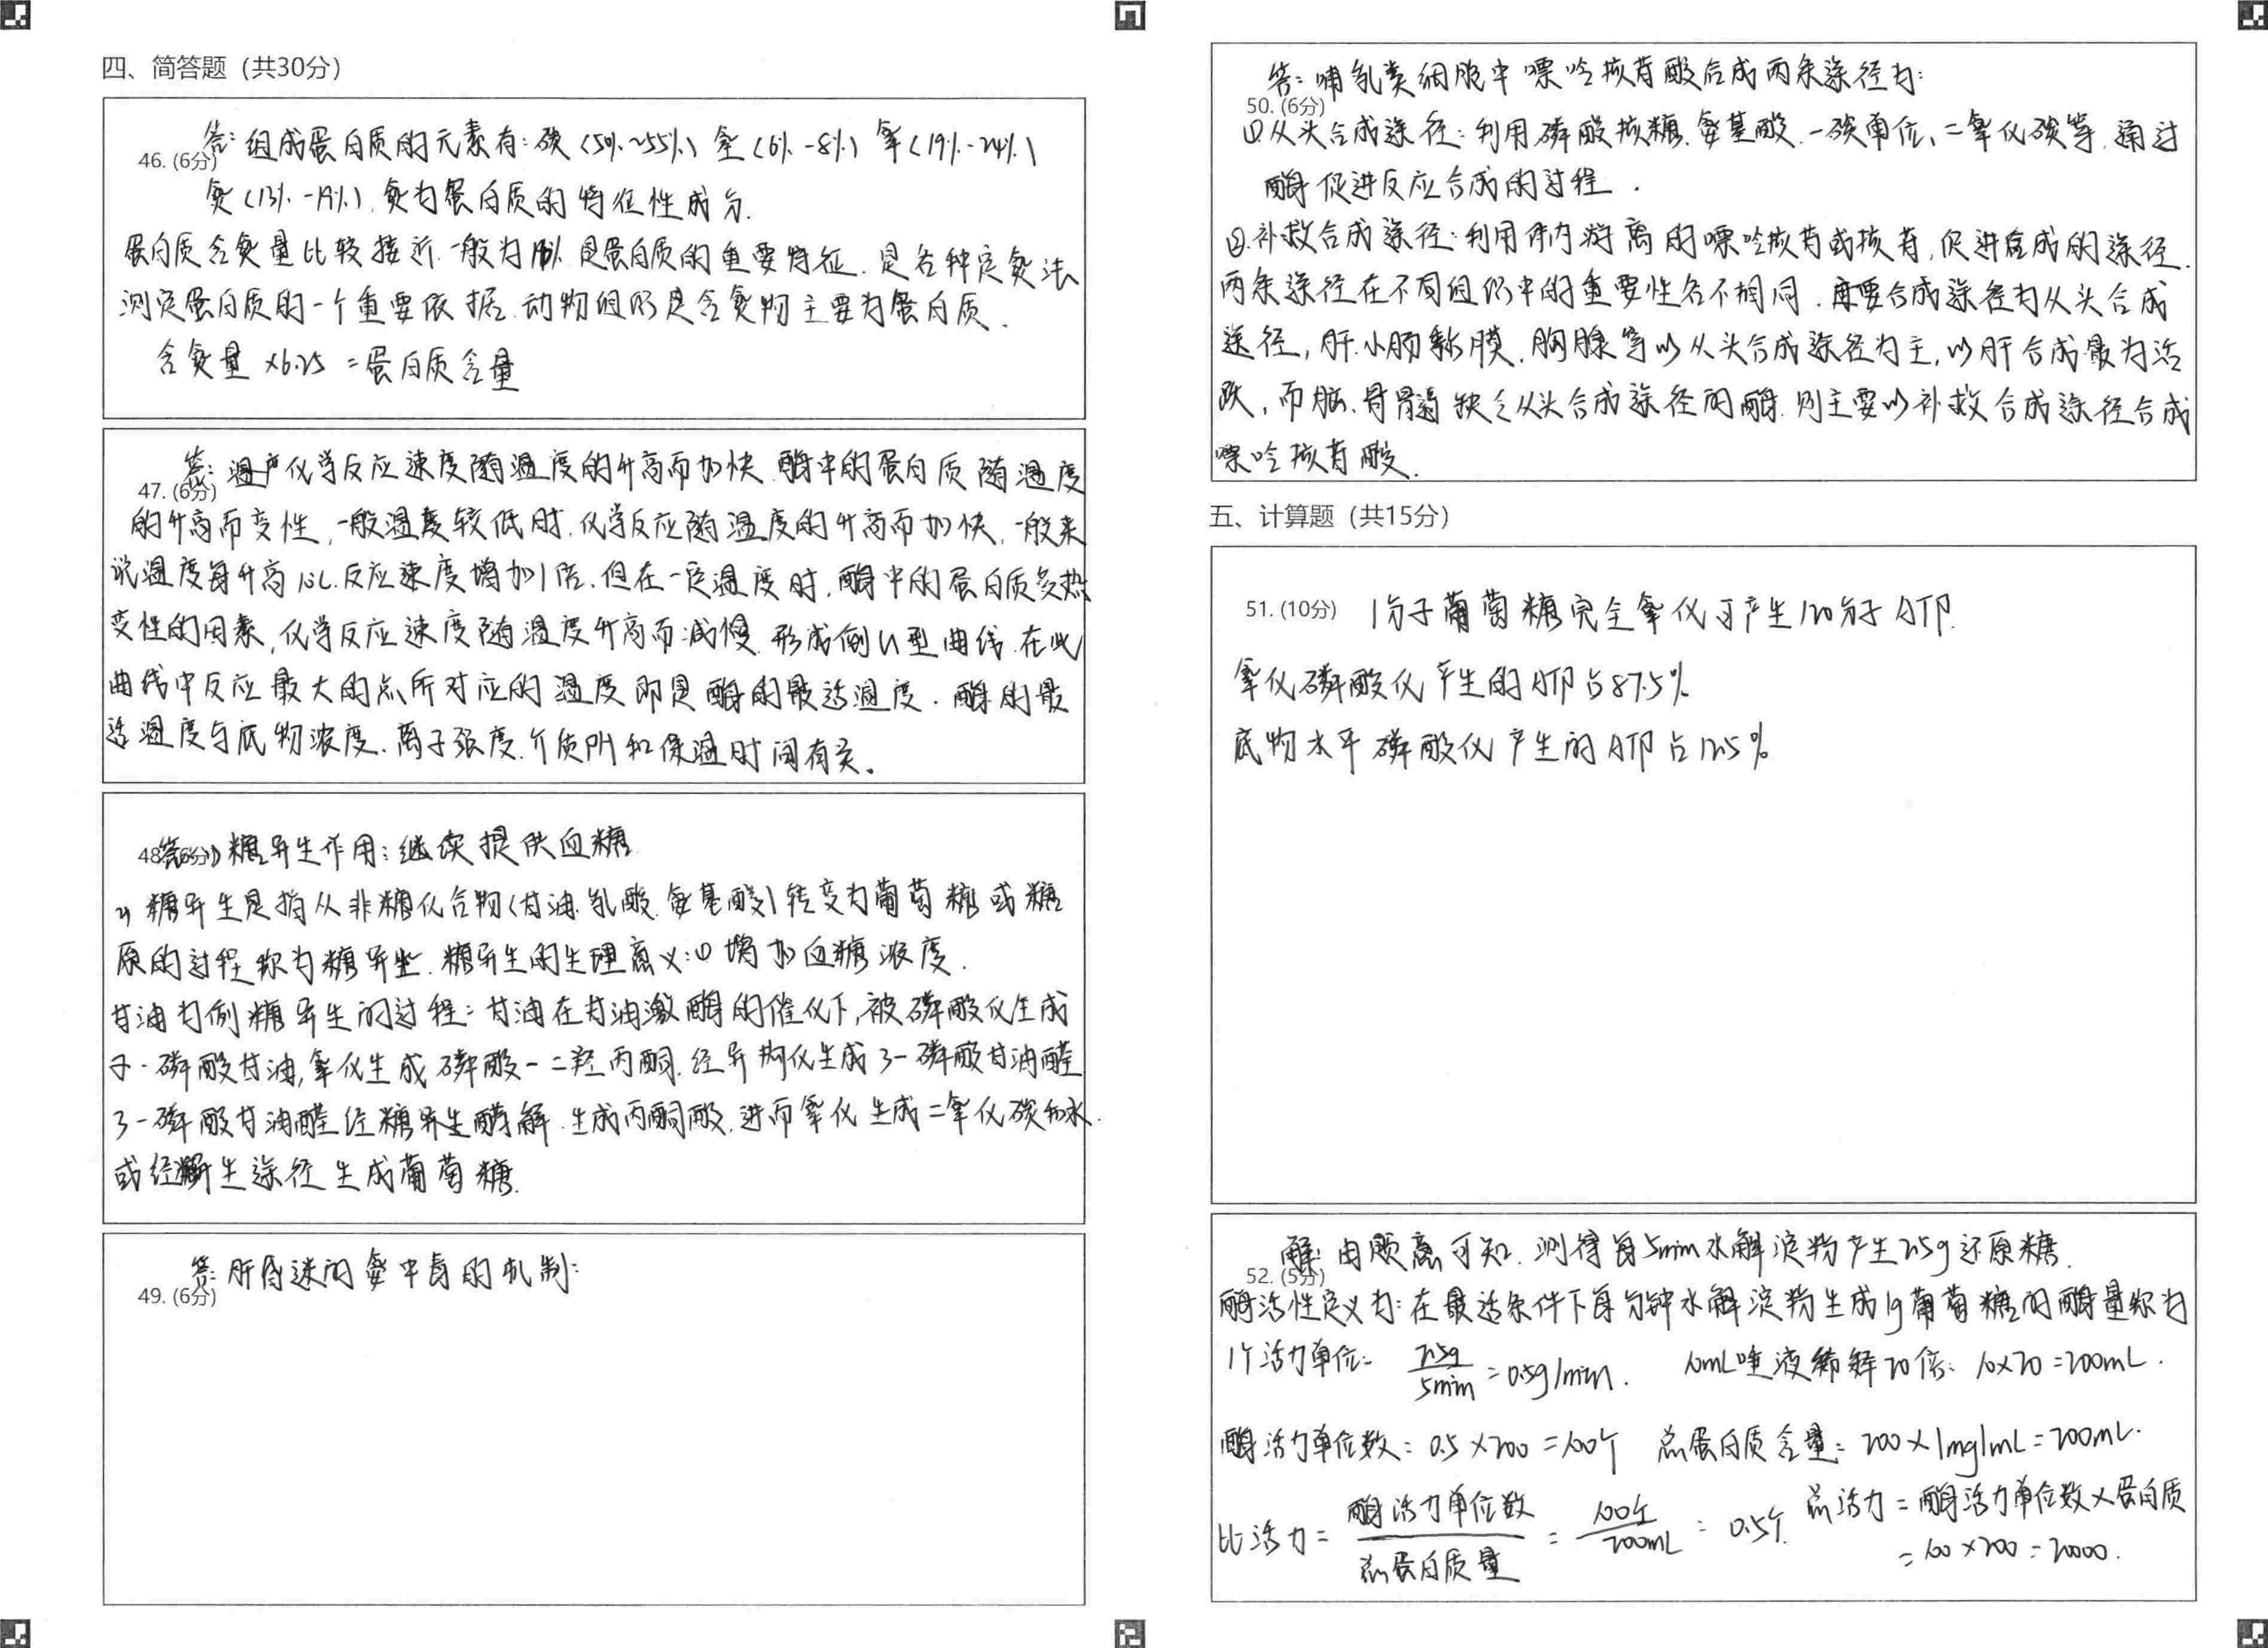 四、简答题（共30分）
答：组成蛋白质的元素有：碳（50%~55%）氢（6%-8%）氧（19%-24%）
46. (6分)
氮（13%-19%），氮为蛋白质的特征性成分.
蛋白质含氮量比较接近.一般为16%.是蛋白质的重要特征.是各种定氮法
测定蛋白质的一个重要依据.动物组织是含氮物主要为蛋白质.
含氮量×6.25=蛋白质含量
答：温度化学反应速度随温度的升高而加快.酶中的蛋白质随温度
47. (6分)
的升高而变性,一般温度较低时.化学反应随温度的升高而加快,一般来
说温度每升高10℃.反应速度增加1倍.但在一定温度时,酶中的蛋白质受热
变性的因素,化学反应速度随温度升高而减慢.形成倒U型曲线.在此
曲线中反应最大的点所对应的温度即是酶的最适温度.酶的最
适温度与底物浓度.离子强度.介质PH和保温时间有关。
48. (6分) 答：(1)糖异生作用：继续提供血糖
(2)糖异生是指从非糖化合物(甘油.乳酸.氨基酸)转变为葡萄糖或糖
原的过程称为糖异生.糖异生的生理意义:①增加血糖浓度.
甘油为例糖异生的过程：甘油在甘油激酶的催化下,被磷酸化生成
α-磷酸甘油,氧化生成磷酸-二羟丙酮.经异构化生成3-磷酸甘油醛
3-磷酸甘油醛经糖异生酵解.生成丙酮酸,进而氧化生成二氧化碳和水.
或经糖异生途径生成葡萄糖.
答：肝昏迷的氨中毒的机制：
49. (6分)
答：哺乳类细胞中嘌呤核苷酸合成两条途径为：
50. (6分)
①.从头合成途径：利用磷酸核糖.氨基酸.一碳单位、二氧化碳等.通过
酶促进反应合成的过程.
②.补救合成途径：利用体内游离的嘌呤核苷或核苷,促进合成的途径.
两条途径在不同组织中的重要性各不相同.主要合成途径为从头合成
途径,肝.小肠黏膜.胸腺等以从头合成途径为主,以肝合成最为活
跃,而脑.骨髓缺乏从头合成途径的酶.则主要以补救合成途径合成
嘌呤核苷酸.
五、计算题（共15分）
51. (10分) 1分子葡萄糖完全氧化可产生120分子ATP.
氧化磷酸化产生的ATP占87.5%
底物水平磷酸化产生的ATP占12.5%
解：由题意可知.测得每5min水解淀粉产生2.5g还原糖.
52. (5分)
酶活性定义为：在最适条件下每分钟水解淀粉生成1g葡萄糖的酶量称为
1个活力单位： 2.5g/5min=0.5g/min. 10mL唾液稀释20倍：10×20=200mL.
酶活力单位数：0.5×200=100个 总蛋白质含量：200×1mg/mL=200mL.
比活力=酶活力单位数/总蛋白质量=100个/200mL=0.5个. 总活力=酶活力单位数×蛋白质
=100×200=20000.